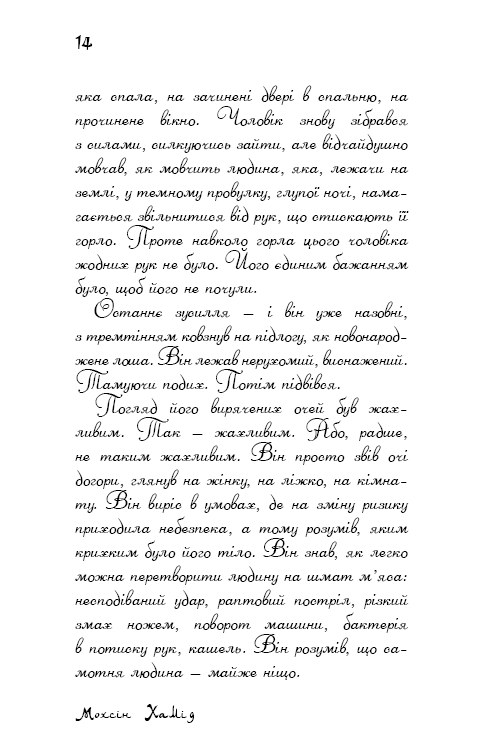 14
яка спала, на зачинені двері в спальню, на
прочинене вікно. Чоловік знову зібрався
з силами, силкуючись зайти, але відчайдушно
мовчав, як мовчить людина, яка, лежачи на
землі, у темному провулку, глупої ночі, нама-
гається звільнитися від рук, що стискають її
горло. Проте навколо горла цього чоловіка
жодних рук не було. Його єдиним бажанням
було, щоб його не почули.
Останнє зусилля — і він уже назовні,
з тремтінням ковзнув на підлогу, як новонарод-
жене лоша. Він лежав нерухомий, виснажений.
Тамуючи подих. Потім підвівся.
Погляд його вирячених очей був жах-
ливим. Так — жахливим. Або, радше,
не таким жахливим. Він просто звів очі
догори, глянув на жінку, на ліжко, на кімна-
ту. Він виріс в умовах, де на зміну ризику
приходила небезпека, а тому розумів, яким
крихким було його тіло. Він знав, як легко
можна перетворити людину на шмат м’яса:
несподіваний удар, раптовий постріл, різкий
змах ножем, поворот машини, бактерія
в потиску рук, кашель. Він розумів, що са-
мотня людина — майже ніщо.
Мохсін Хамід